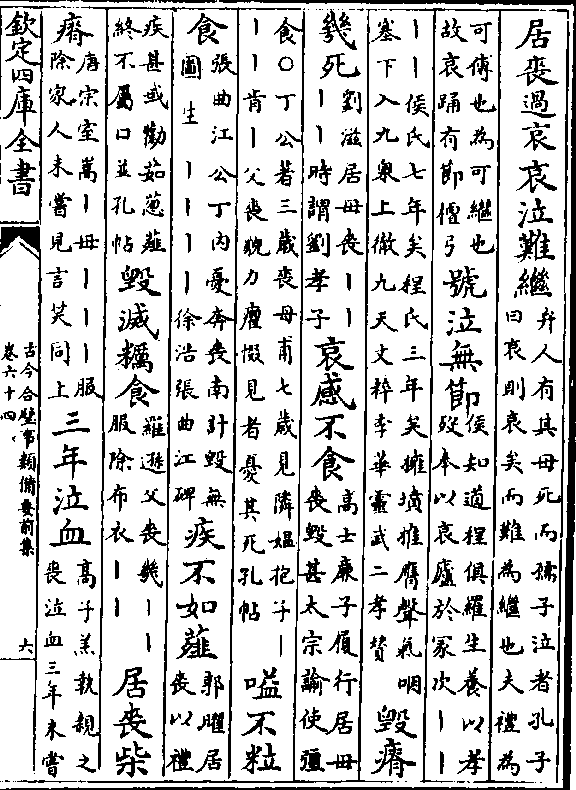 居喪過哀哀泣難繼
弁人有其母死而孺子泣者孔子
曰哀則哀矣而難為繼也夫禮為
可傳也為可繼也
故哀踊有節檀弓
號泣無節
侯知道程俱羅生養以孝
殁奉以哀廬於冢次丨丨
丨丨侯氏七年矣程氏三年矣擁墳摧膺聲氣咽
塞下入九泉上徹九天文粹李華靈武二孝贊
毀瘠
幾死
劉滋居母喪丨丨
丨丨時謂劉孝子
哀感不食
高士廉子履行居母
喪毀甚太宗諭使彊
食○丁公著三歲喪母甫七歲見隣媪抱子丨
丨丨肯丨父喪貌力癯惙見者憂其死孔帖
嗌不粒
食
張曲江公丁內憂奔喪南計毀無
圖生丨丨丨丨徐浩張曲江碑
疾不如薤
郭曜居
喪以禮
疾甚或勸茹葱薤
終不屬口並孔帖
毀滅糲食
羅遜父喪幾丨丨
服除布衣丨丨
居喪柴
瘠
唐宗室嵩丨母丨丨丨服
除家人未嘗見言笑同上
三年泣血
高子羔執親之
喪泣血三年未嘗
欽定四庫全書
古今合璧事類備要前集
卷六十四
六